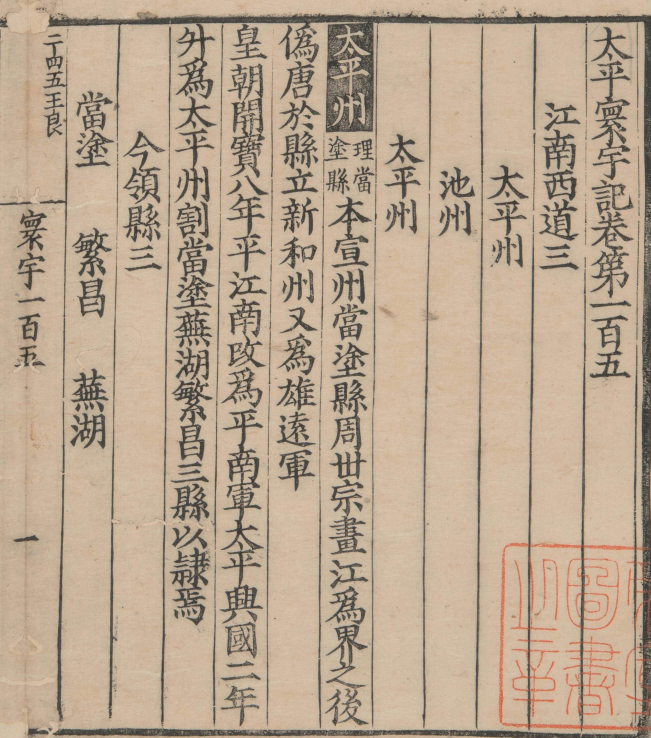 太平寰宇記卷第一百五
江南西道三
太平州
池州
太平州
太平州理當塗縣本宣州當塗縣周丗宗畫江爲界之後
僞唐於縣立新和州又爲雄逺軍
皇朝開寶八年平江南改爲平南軍太平興國二年
升爲太平州割當塗蕪湖繁昌三縣以隷焉
今領縣三
當塗 繁昌 蕪湖
二四五王良
寰宇一百五
一
圖書